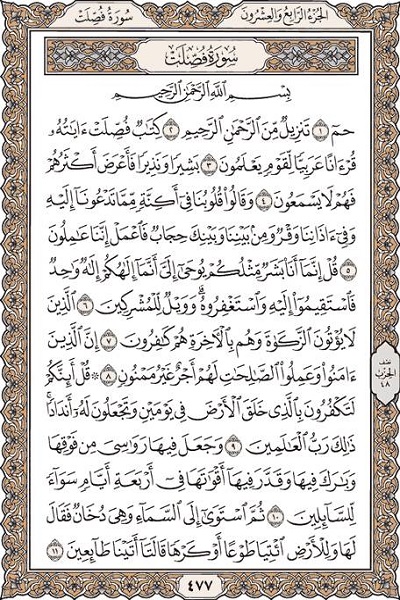 سُورَةُ فُصِّلَتْ
الجُزْءُ الرَّابِعُ وَالعِشْرُونَ
سُورَةُ فُصِّلَتْ
بِسْمِ اللَّهِ الرَّحْمَٰنِ الرَّحِيمِ
حمٓ ١ تَنزِيلٌ مِّنَ ٱلرَّحْمَٰنِ ٱلرَّحِيمِ ٢ كِتَٰبٌ فُصِّلَتْ ءَايَٰتُهُۥ
قُرْءَانًا عَرَبِيًّا لِّقَوْمٍ يَعْلَمُونَ ٣ بَشِيرًا وَنَذِيرًا فَأَعْرَضَ أَكْثَرُهُمْ
فَهُمْ لَا يَسْمَعُونَ ٤ وَقَالُوا۟ قُلُوبُنَا فِىٓ أَكِنَّةٍ مِّمَّا تَدْعُونَآ إِلَيْهِ
وَفِىٓ ءَاذَانِنَا وَقْرٌ وَمِنۢ بَيْنِنَا وَبَيْنِكَ حِجَابٌ فَٱعْمَلْ إِنَّنَا عَٰمِلُونَ
٥ قُلْ إِنَّمَآ أَنَا۠ بَشَرٌ مِّثْلُكُمْ يُوحَىٰٓ إِلَىَّ أَنَّمَآ إِلَٰهُكُمْ إِلَٰهٌ وَٰحِدٌ
فَٱسْتَقِيمُوٓا۟ إِلَيْهِ وَٱسْتَغْفِرُوهُ ۗ وَوَيْلٌ لِّلْمُشْرِكِينَ ٦ ٱلَّذِينَ
لَا يُؤْتُونَ ٱلزَّكَوٰةَ وَهُم بِٱلْءَاخِرَةِ هُمْ كَٰفِرُونَ ٧ إِنَّ ٱلَّذِينَ
ءَامَنُوا۟ وَعَمِلُوا۟ ٱلصَّٰلِحَٰتِ لَهُمْ أَجْرٌ غَيْرُ مَمْنُونٍ ٨ ۞ قُلْ أَئِنَّكُمْ
لَتَكْفُرُونَ بِٱلَّذِى خَلَقَ ٱلْأَرْضَ فِى يَوْمَيْنِ وَتَجْعَلُونَ لَهُۥٓ أَندَادًا ۚ
ذَٰلِكَ رَبُّ ٱلْعَٰلَمِينَ ٩ وَجَعَلَ فِيهَا رَوَٰسِىَ مِن فَوْقِهَا
وَبَٰرَكَ فِيهَا وَقَدَّرَ فِيهَآ أَقْوَٰتَهَا فِىٓ أَرْبَعَةِ أَيَّامٍ سَوَآءً
لِّلسَّآئِلِينَ ١٠ ثُمَّ ٱسْتَوَىٰٓ إِلَى ٱلسَّمَآءِ وَهِىَ دُخَانٌ فَقَالَ
لَهَا وَلِلْأَرْضِ ٱئْتِيَا طَوْعًا أَوْ كَرْهًا قَالَتَآ أَتَيْنَا طَآئِعِينَ ١١
نصف
الحزب
٤٨
٤٧٧